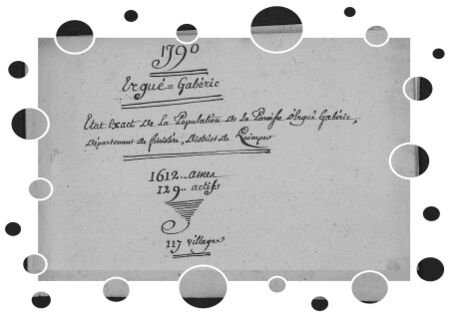 1790
Ergué=Gabéric
Etat Exact De La Population De La Paroisse D'Ergué Gabéric,
Département de finistère, District de Quimper
1612.. ames
129.. actifs
117 villages